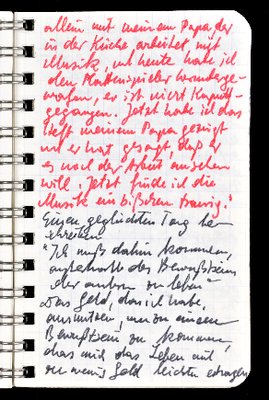 allein mit meinem Papa der
in der Küche arbeitet, mit
Musik, und heute habe ich
den Plattenspieler runterge-
worfen, er ist nicht kaputt-
gegangen. Jetzt habe ich das
Heft meinem Papa gezeigt
und er hat gesagt, daß er
es nach der Arbeit ansehen
will. Jetzt finde ich die
Musik ein bißchen traurig."
Einen geglückten Tag be-
schreiben
"Ich muß dahin kommen,
außerhalb des Bewußtseins
der andern zu leben"
Das Geld, das ich habe,
ausnützen, um zu einem
Bewußtsein zu kommen,
das mir das Leben mit
zu wenig Geld leichter ertragen